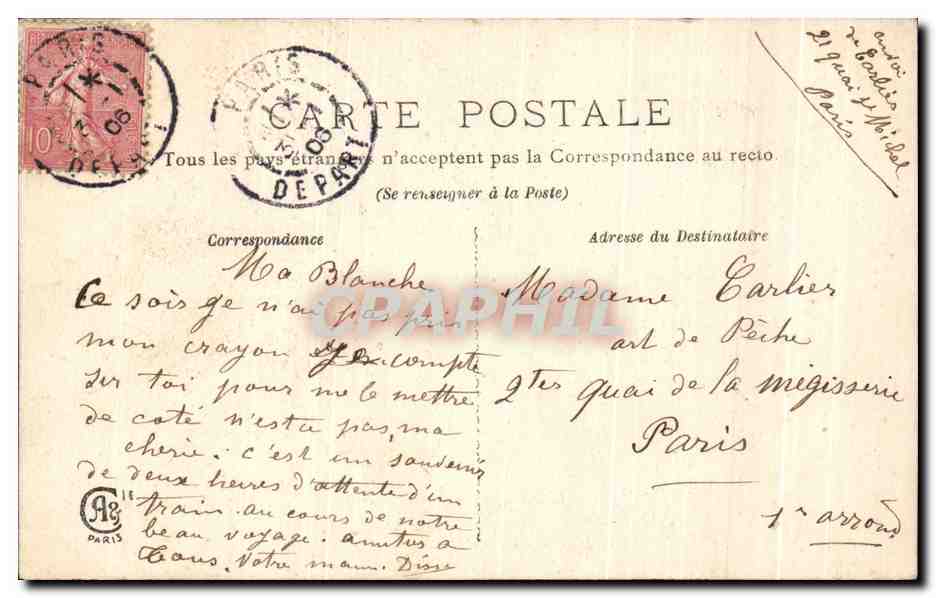 PARIS
10
06
DEPART
PARIS
06
DEPART
envoi
de Carlier
21 quai St Michel
Paris
CARTE POSTALE
Tous les pays étrangers n'acceptent pas la Correspondance au recto
(Se renseigner à la Poste)
Correspondance
Adresse du Destinataire
Ma Blanche
Ce soir je n'ai pas pris
mon crayon compte
sur toi pour me le mettre
de coté n'est ce pas, ma
cherie. c'est un souvenir
de deux heures d'attente d'un
train au cours de notre
beau voyage. amities a
Tous. Votre
Madame Carlier
art de Pêche
2ter quai de la mégisserie
Paris
1r arrond
PARIS
CPAPHIL